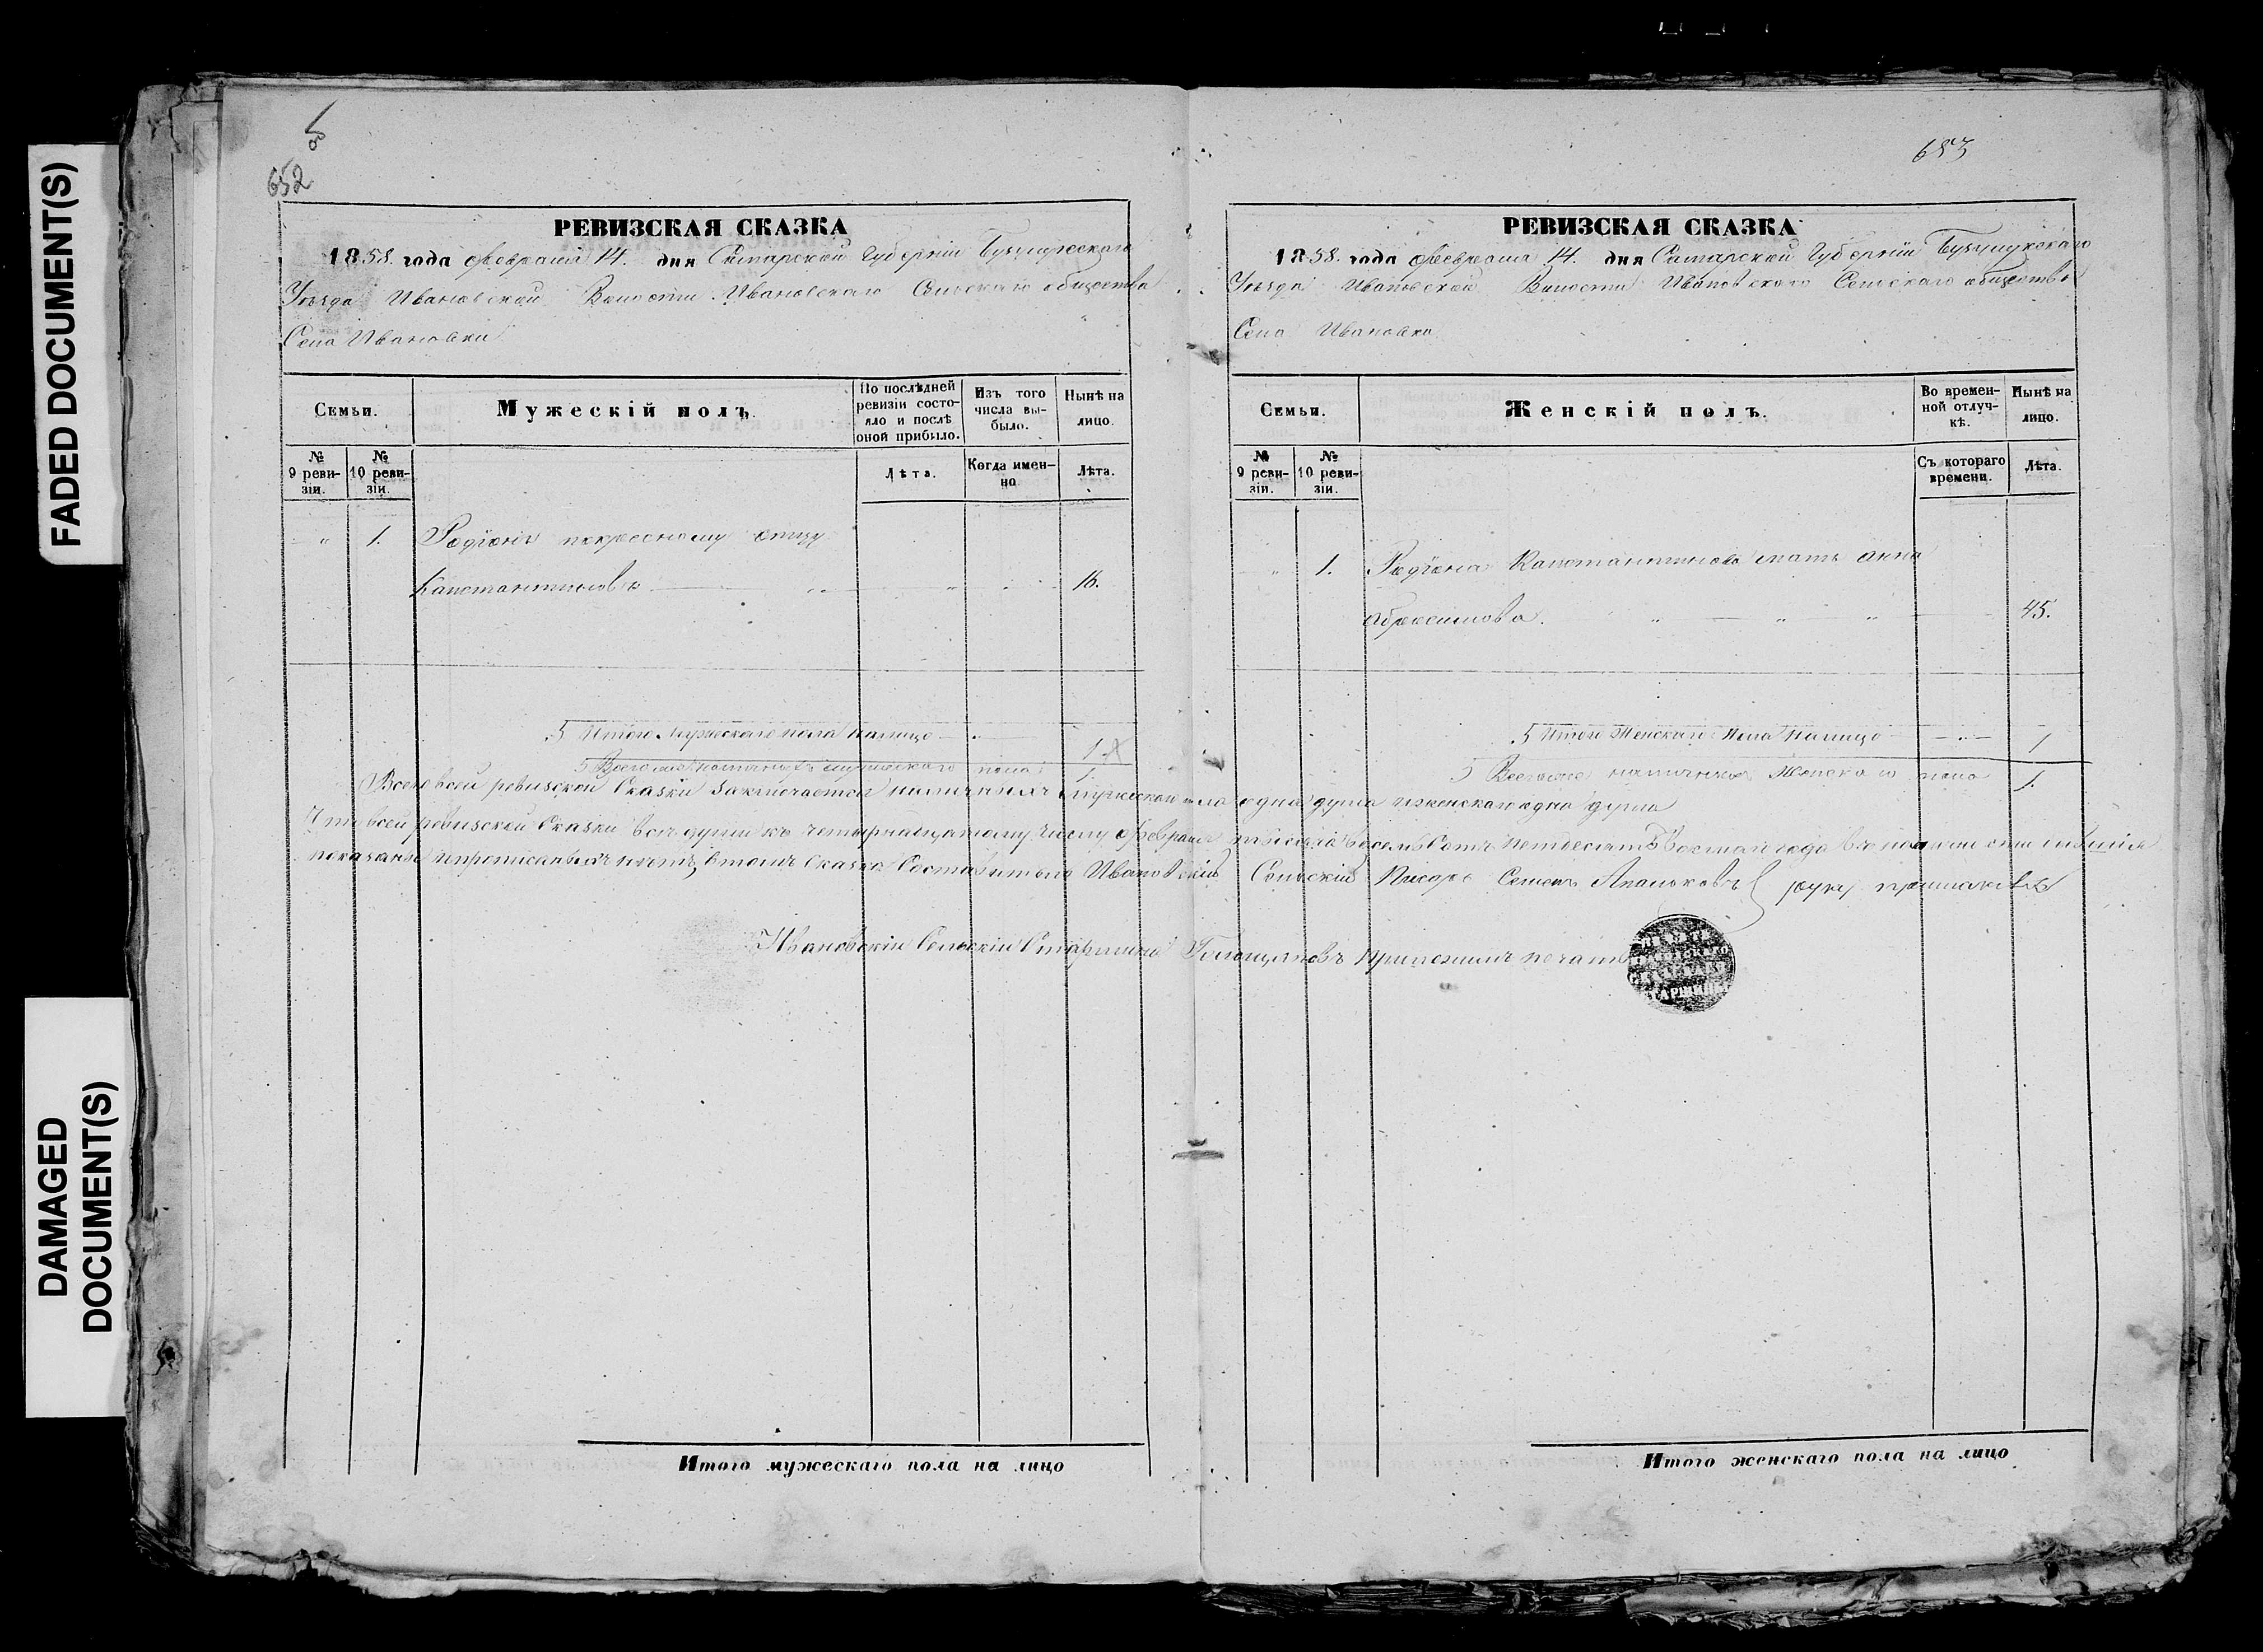 FADED DOCUMENT(S)
DAMAGED
DOCUMENT(S)
652
РЕВИЗСКАЯ СКАЗКА
1858. года февраля 14. дня Самарской Губернiи Бузулукскаго
Уѣзда Ивановской Волости Ивановскаго Сельскаго общества
Села Ивановки
Семьи.
Мужескiй полъ.
По послѣдней
ревизiи состо-
яло и послѣ
оной прибыло.
Изъ того
числа вы-
было.
Нынѣ на
лицо.
№
9 реви-
зiи.
№
10 реви-
зiи.
Лѣта.
Когда имен-
но
Лѣта.
" 1. Родiонъ покресному отцу
Констаптиновъ 16.
5 Итого Мужескаго пола налицо 1
5 Всего наличныхъ мужескаго пола 1.
653
РЕВИЗСКАЯ СКАЗКА
1858. года февраля 14. дня Самарской Губернiи Бузулукскаго
Уѣзда Ивановской Волости Ивановского Сельскаго общества
Села Ивановка
Семьи.
Женскiй полъ.
Во времен-
ной отлуч-
кѣ.
Нынѣ на
лицо.
№
9 реви-
зiи.
№
10 реви-
зiи.
Съ котораго
времени.
Лѣта.
" 1. Родiона Констаптинова мать Анна
Абросимова. 45.
5 Итого Женскаго Пола Налицо 1
5 Всего наличныхъ Женскаго пола 1.
Всего всей ревизской Сказки заключается наличныхъ мужескаго пола одна душа и женскаго одна душа
Что всей ревизской Сказки всѣ души къ четырнадцатому числу февраля тысяча восемьсотъ петдесятъ восьмаго года
показаны и прописаныхъ нѣтъ, втомъ Сказка Составитель Ивановскiй Сельскiй Писарь Семенъ Апальковъ руку приложилъ
Ивановскiй Сельскiй Старшина приложилъ печать
СТАРШИНЫ
Итого мужескаго пола на лицо
Итого женскаго пола на лицо